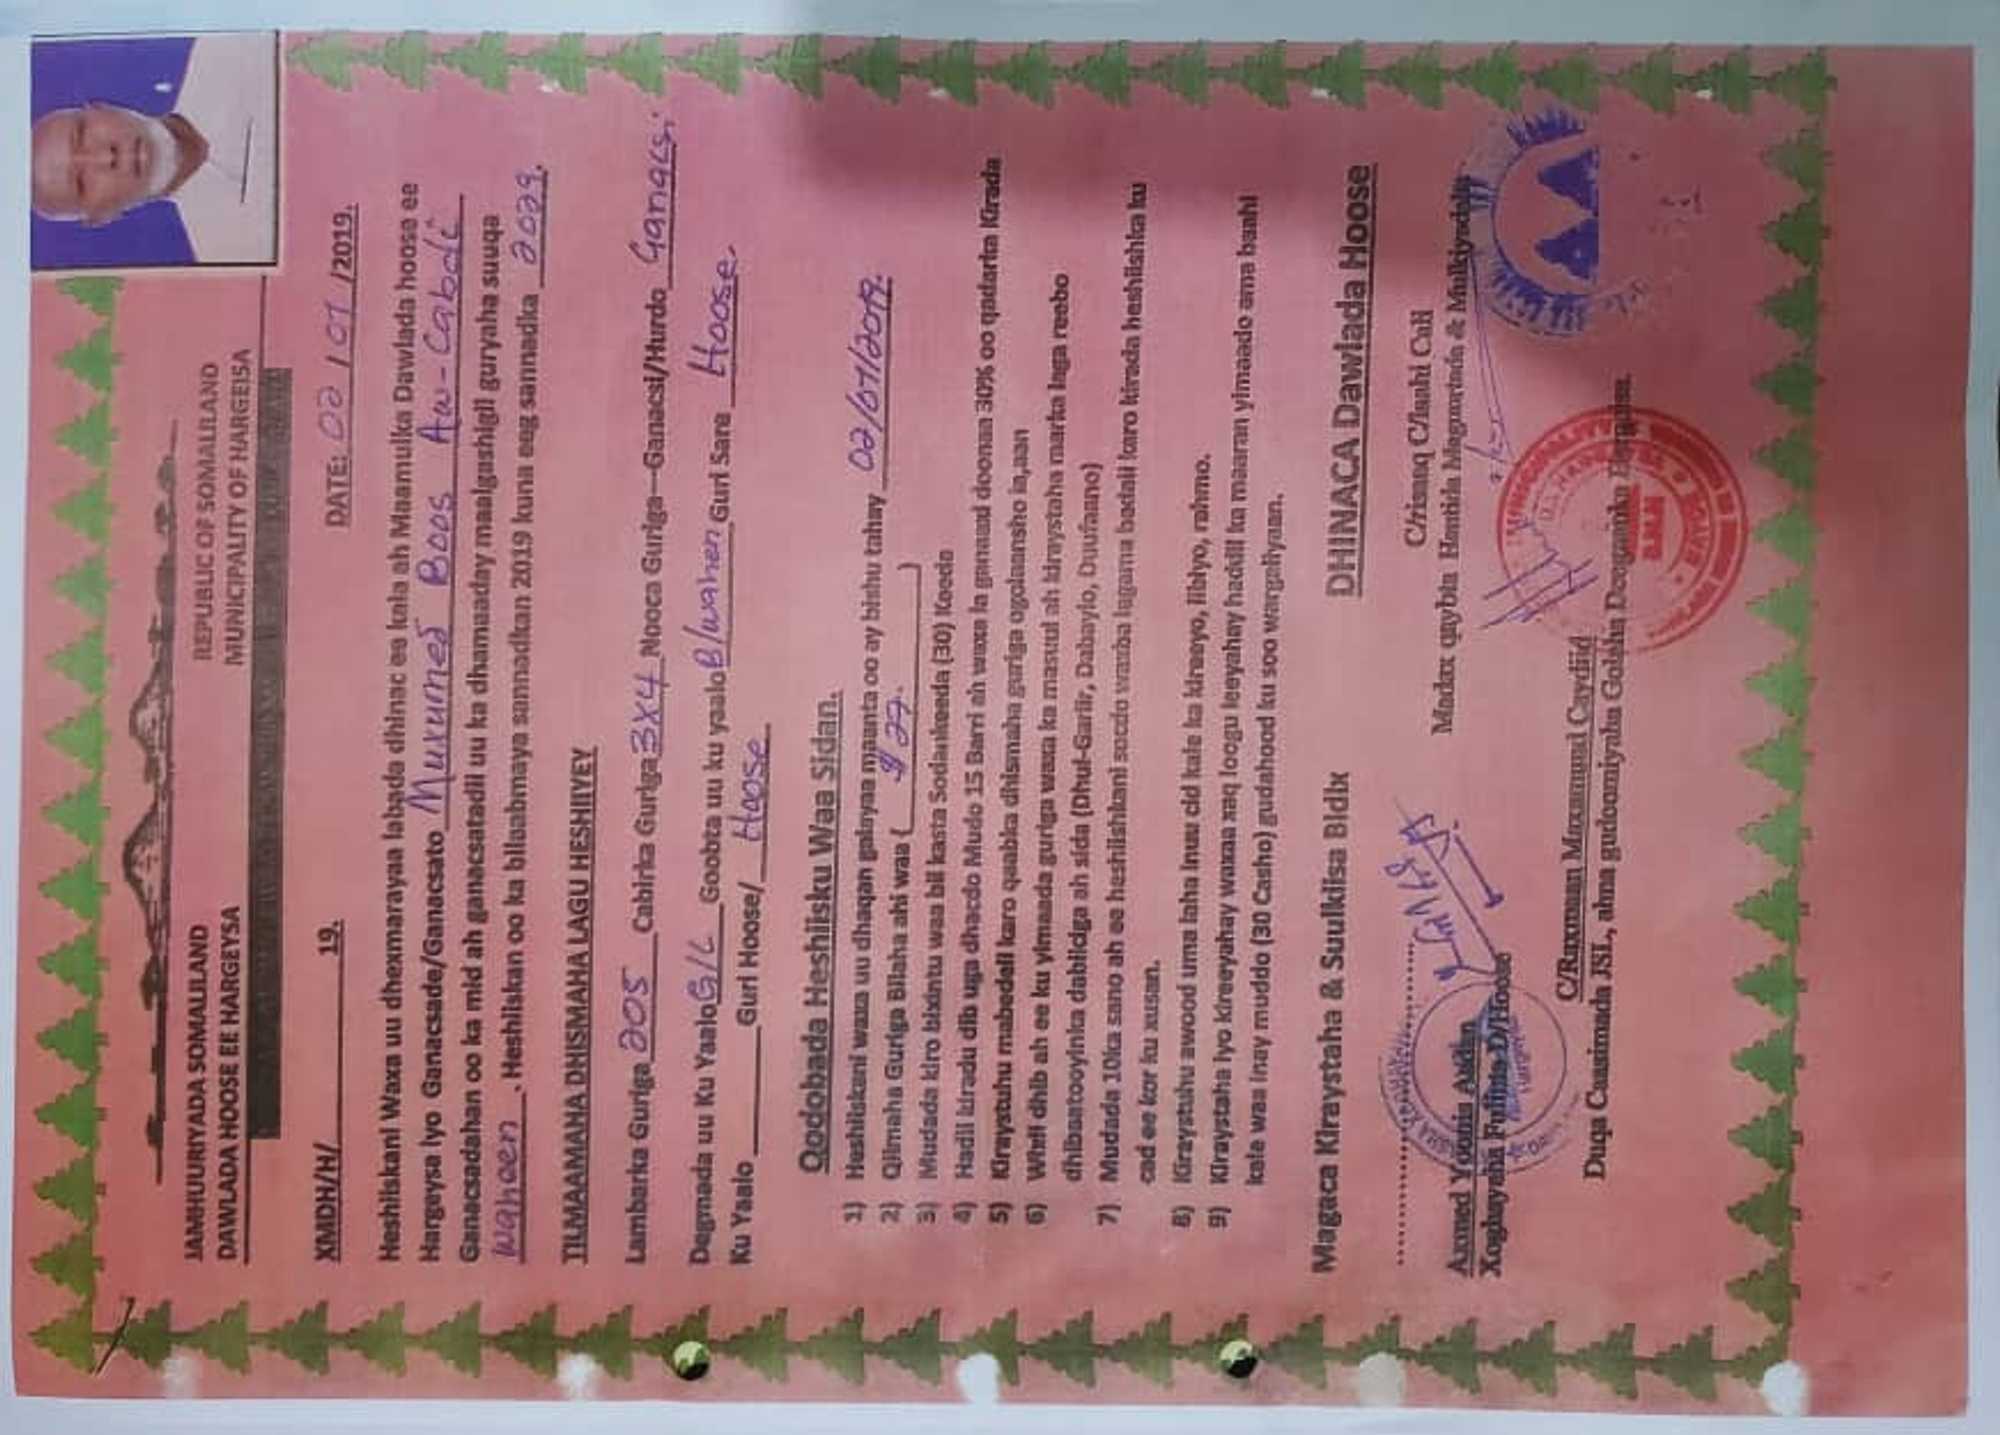 JAMHUURIYADA SOMALILAND
DAWLADA HOOSE EE HARGEYSA
REPUBLIC OF SOMALILAND
MUNICIPALITY OF HARGEISA
XMDH/H/______19.
DATE: 02/07/2019.
Heshiiskani Waxa uu dhexmarayaa labada dhinac ee kala ah Maamulka Dawlada hoose ee
Hargeysa iyo Ganacsade/Ganacsato Muxumed Boos Aw-Cabdi
Ganacsadahan oo ka mid ah ganacsatadii uu ka dhanmaaday maalgashigii guryaha suuqa
waheen. Heshiiskan oo ka bilaabmaya sannadkan 2019 kuna eeg sannadka 2029.
TILMAAMAHA DHISMAHA LAGU HESHIIYEY
Lambarka Guriga 205 Cabirka Guriga 3x4 Nooca Guriga-Ganacsi/Hurdo Ganacsi.
Degmada uu Ku Yaalo G/L Goobta uu ku yaalo B/wahen Guri Sare Hoose.
Ku Yaalo ______ Guri Hoose/ Hoose
Qodobada Heshiisku Waa Sidan.
1) Heshiiskani waxa uu dhaqan galayaa maanta oo ay bishu tahay 02/07/2019.
2) Qiimaha Guriga Bilaha ahi waa ( $ 27. )
3) Mudada kiro bixintu waa bil kasta Sodankeeda (30) Keeda
4) Hadii kiradu dib uga dhacdo Mudo 15 Barri ah waxa la ganaaxi doonaa 30% oo qadarka Kirada
5) Kiraystuhu mabedeli karo qaabka dhismaha guriga ogolaansho la,aan
6) Wixii dhib ah ee ku yimaada guriga waxa ka masuul ah kiraystaha marka laga reebo
dhibaatooyinka dabiiciga ah sida (Dhul-Gariir, Dabaylo, Duufaano)
7) Mudada 10ka sano ah ee heshiiskani socdo waxba lagama badali karo kirada heshiiska ku
cad ee kor ku xusan.
8) Kiraystuhu awood uma laha inuu cid kale ka kireeyo, iibiyo, rahmo.
9) Kiraystaha iyo kireeyahay waxaa xaq loogu leeyahay hadiii ka maaran yimaado ama baahi
kale waa inay muddo (30 Casho) gudahood ku soo wargaliyaan.
Magaca Kiraystaha & Suulkiisa Bidix
DHINACA Dawlada Hoose
C/risaaq C/laahi Cali
Madax qaybta Hantida Maguurtada & Mulkiyadda
Axmed Yoonis Aidan
Xoghayaha Fulinta D/Hoose
C/Raxmaan Maxamuud Caydiid
Duqa Caasimada JSL, ahna gudoomiyaha Golaha Deegaanka Hargeisa.